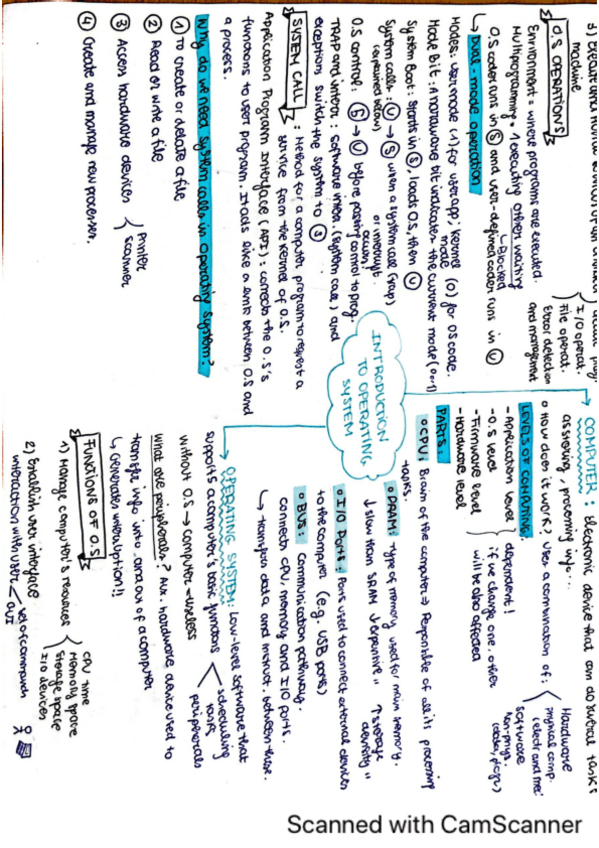 COMPUTER : Electronic device that can do several tasks
assuring, processing info...
How does it work? Uses a combination of:
Hardware
physical comp.
(electr. and mec.
Software
Non-phys.
(data, progr.)
LEVELS OF COMPUTING:
- Application level
- O.S level
- Firmware level
- Hardware level
dependent!
if we change one, other
will be also affected
PARTS:
CPU: Brain of the computer ⇒ Responsible of all its processing
tasks.
DRAM: Type of memory used for main memory.
↓ slow than SRAM ↓ expensive " ↑ storage
density "
I/O Ports: Ports used to connect external devices
to the computer (e.g. USB ports)
BUS: Communication pathway.
connects CPU, memory and I/O ports.
↳ transfers data and instruct. between these.
OPERATING SYSTEM: Low-level software that
supports a computer's basic functions
scheduling
tasks
peripherals
without O.S → computer = useless
what are peripherals? Aux. hardware device used to
transfer info into and out of a computer
↳ Generates interruption!!
FUNCTIONS OF O.S
1) Manage computer's resources
CPU time
Memory space
Storage space
I/O devices
2) Establish user interface
interaction with user
set of commands
GUI
INTRODUCTION
TO OPERATING
SYSTEM
3) Execute and
machine
I/O operat.
File operat.
Error detection
and management
O.S OPERATIONS
Environment = where programs are executed.
Multiprogramming = 1 executing other waiting
↳ Blocked
O.S codes runs in Ⓢ and user-defined codes runs in Ⓤ
↳ Dual-mode operation
Modes: user mode (1) for user app; kernel
mode (0) for OS code.
Mode Bit: A hardware bit indicates the current mode (0-1)
System Boot: starts in Ⓢ, loads O.S, then Ⓤ
System calls: Ⓤ → Ⓢ when a system call (trap)
(explained below) or interrupt.
occurs!
O.S control: Ⓢ → Ⓤ before passing control to prog.
TRAP and interr.: Software interr. (system call) and
exceptions switch the system to Ⓢ
SYSTEM CALL : Method for a computer program to request a
service from the kernel of O.S.
Application Program Interface (API): connects the O.S's
functions to user program. It acts like a link between O.S and
a process.
Why do we need system calls in Operating System?
① To create or delate a file
② Read or write a file
③ Access hardware devices
Printer
Scanner
④ Create and manage new processes.
Scanned with CamScanner